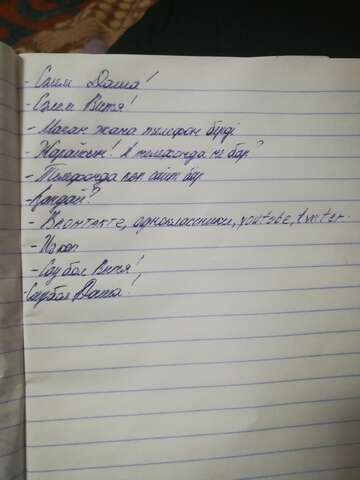 - Сәлем Даша!
- Сәлем Витя!
- Маған жаңа телефон берді
- Жарайсың! А телефонда не бар?
- Телефонда көп сайт бар
- Қандай?
- Вконтакте, одноклассники, youtube, twiter.
- Сау бол Витя!
- Сау бол Даша!